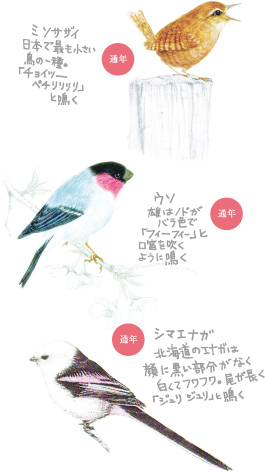 ミソサザイ
日本で最も小さい
鳥の一種。
「チョイツー
ペチリリリリ」
と鳴く
通年
ウソ
雄はノドが
バラ色で
「フィーフィー」と
口笛を吹く
ように鳴く
通年
通年
シマエナガ
北海道のエナガは
顔に黒い部分がなく
白くてフワフワ。尾が長く
「ジュリ ジュリ」と鳴く